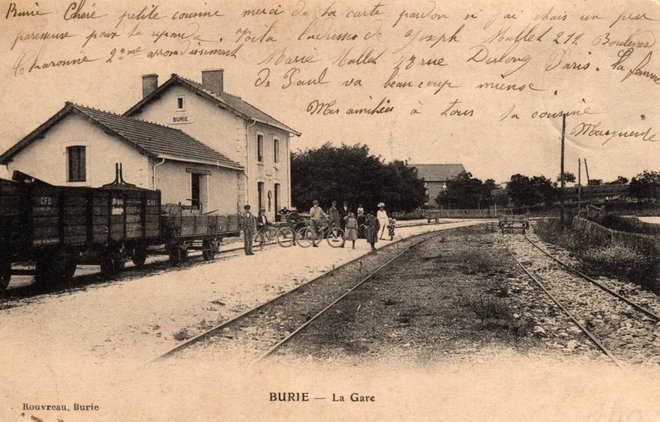 Burie Chère petite cousine merci de ta carte pardon si j'ai était un peu
paresseuse pour te repondre. Voila l'adresse de Joseph Mallet 212 Boulevard
Charonne 2ème arrondissement Marie Mallet rue Paris. la femme
de Paul va beaucoup mieux.
Mes amitiés à tous ta cousine
Marguerite
BURIE
CFD
BURIE — La Gare
Rouvreau, Burie